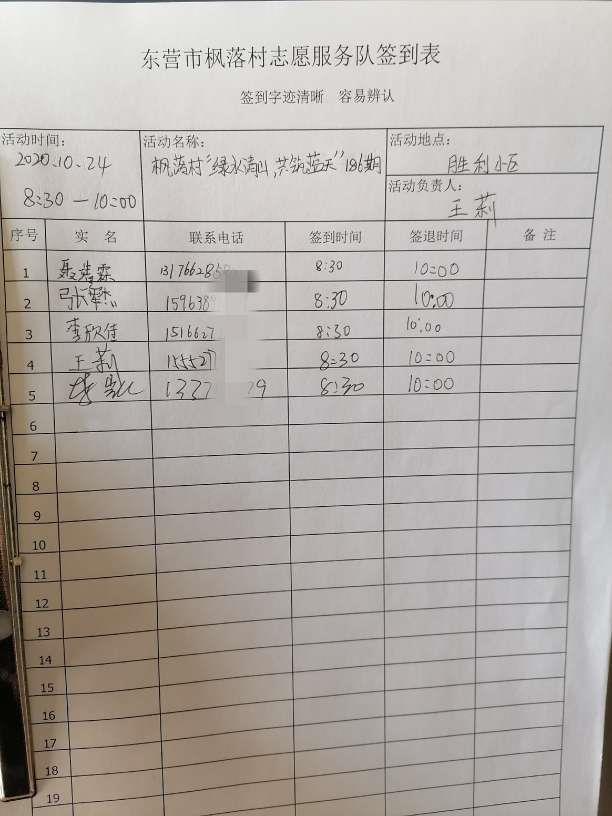 东营市枫落村志愿服务队签到表
签到字迹清晰 容易辨认
活动时间：
2020.10.24
8:30 — 10:00
活动名称：
枫落村“绿水清山,共筑蓝天”186期
活动地点：
胜利小区
活动负责人：
王莉
序号 实 名 联系电话 签到时间 签退时间 备 注
1 聂 霖 131766286 8:30 10:00
2 张 159638 8:30 10:00
3 李欣佳 1516627 8:30 10:00
4 王莉 155527 8:30 10:00
5 1337 29 8:30 10:00
6
7
8
9
10
11
12
13
14
15
16
17
18
19